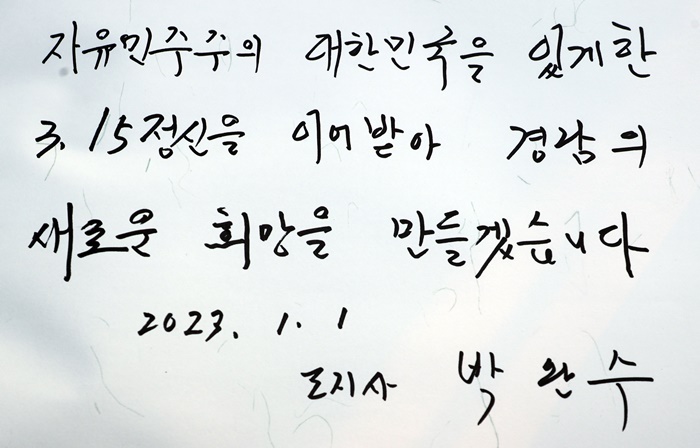 자유민주주의 대한민국을 있게한
3.15정신을 이어받아 경남의
새로운 희망을 만들겠습니다
2023. 1. 1
도지사 박 완 수